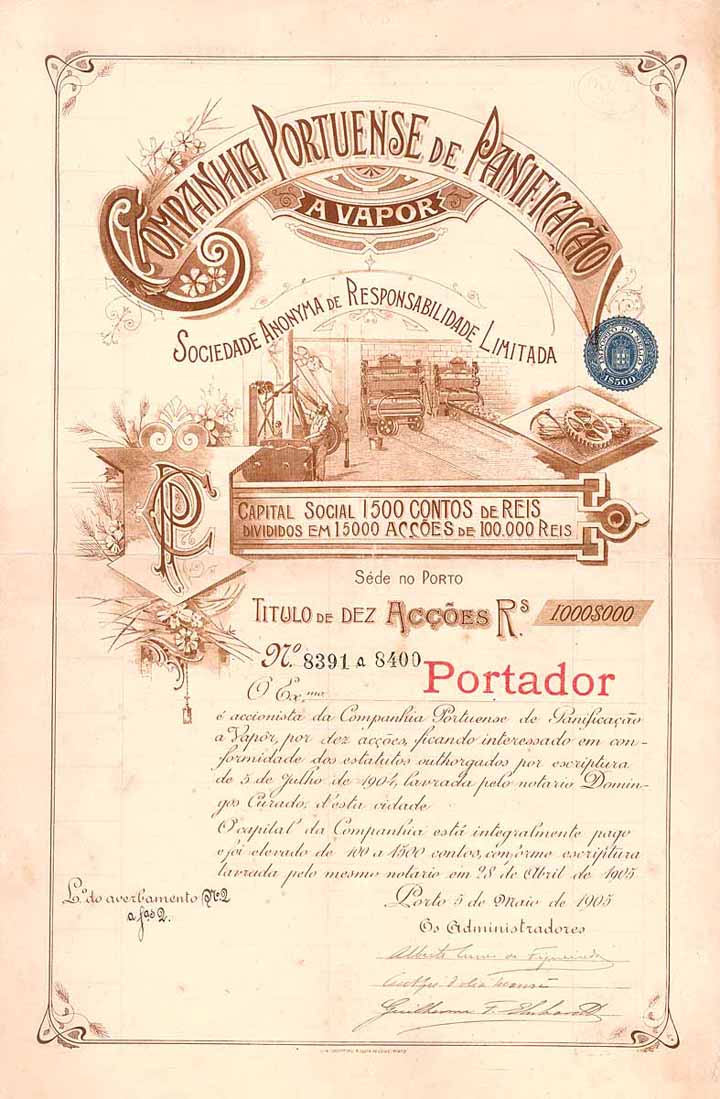 COMPANHIA PORTUENSE DE PANIFICAÇÃO
A VAPOR
SOCIEDADE ANONYMA DE RESPONSABILIDADE LIMITADA
IMPOSTO DO SELLO
1$500
PC
CAPITAL SOCIAL 1500 CONTOS DE REIS
DIVIDIDOS EM 15000 ACÇÕES DE 100.000 REIS
Séde no Porto
TITULO DE DEZ ACÇÕES Rs 1.000$000
Nº 8391 a 8400
Portador
O Ex.mo
é accionista da Companhia Portuense de Panificação
a Vapôr, por dez acções, ficando interessado em con-
formidade dos estatutos outhorgados por escriptura
de 5 de Julho de 1904, lavrada pelo notario Domin-
gos Curado, d'esta cidade
O capital da Companhia está integralmente pago
e foi elevado de 100 a 1500 contos, conforme escriptura
lavrada pelo mesmo notario em 28 de Abril de 1905
L.º do averbamento Nº 2
a fas 2.
Porto 5 de Maio de 1905
Os Administradores
Alberto Nunes de Figueiredo
Guilherme F.